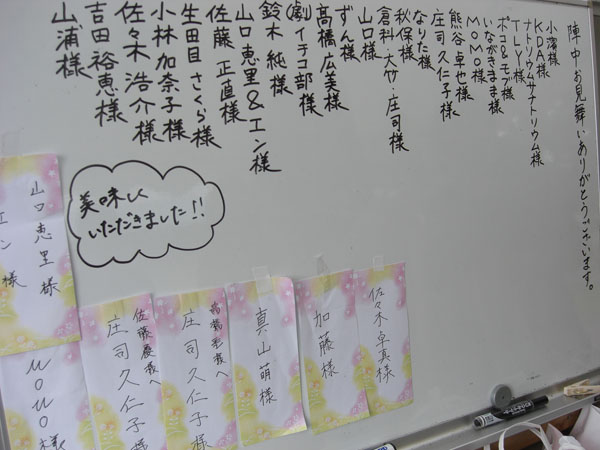 陣中お見舞いありがとうございます。
小濱様
KDA様
ナトリウムサナトリウム様
TLT様
ポコ&モブ様
いながきまま様
MOMO様
熊谷卓也様
庄司久仁子様
なりた様
秋保様
倉料・大竹・庄司様
山口様
ずん様
高橋広美様
(劇)イチコ部様
鈴木純様
山口恵里&エン様
佐藤正直様
生田目さくら様
小林加奈子様
佐々木浩介様
吉田裕恵様
山浦様
美味しく
いただきました!!
佐々木卓真様
加藤様
真山萌様
庄司久仁子様
佐藤慶様へ
庄司久仁子様
山口恵里様
エン様
MOMO様